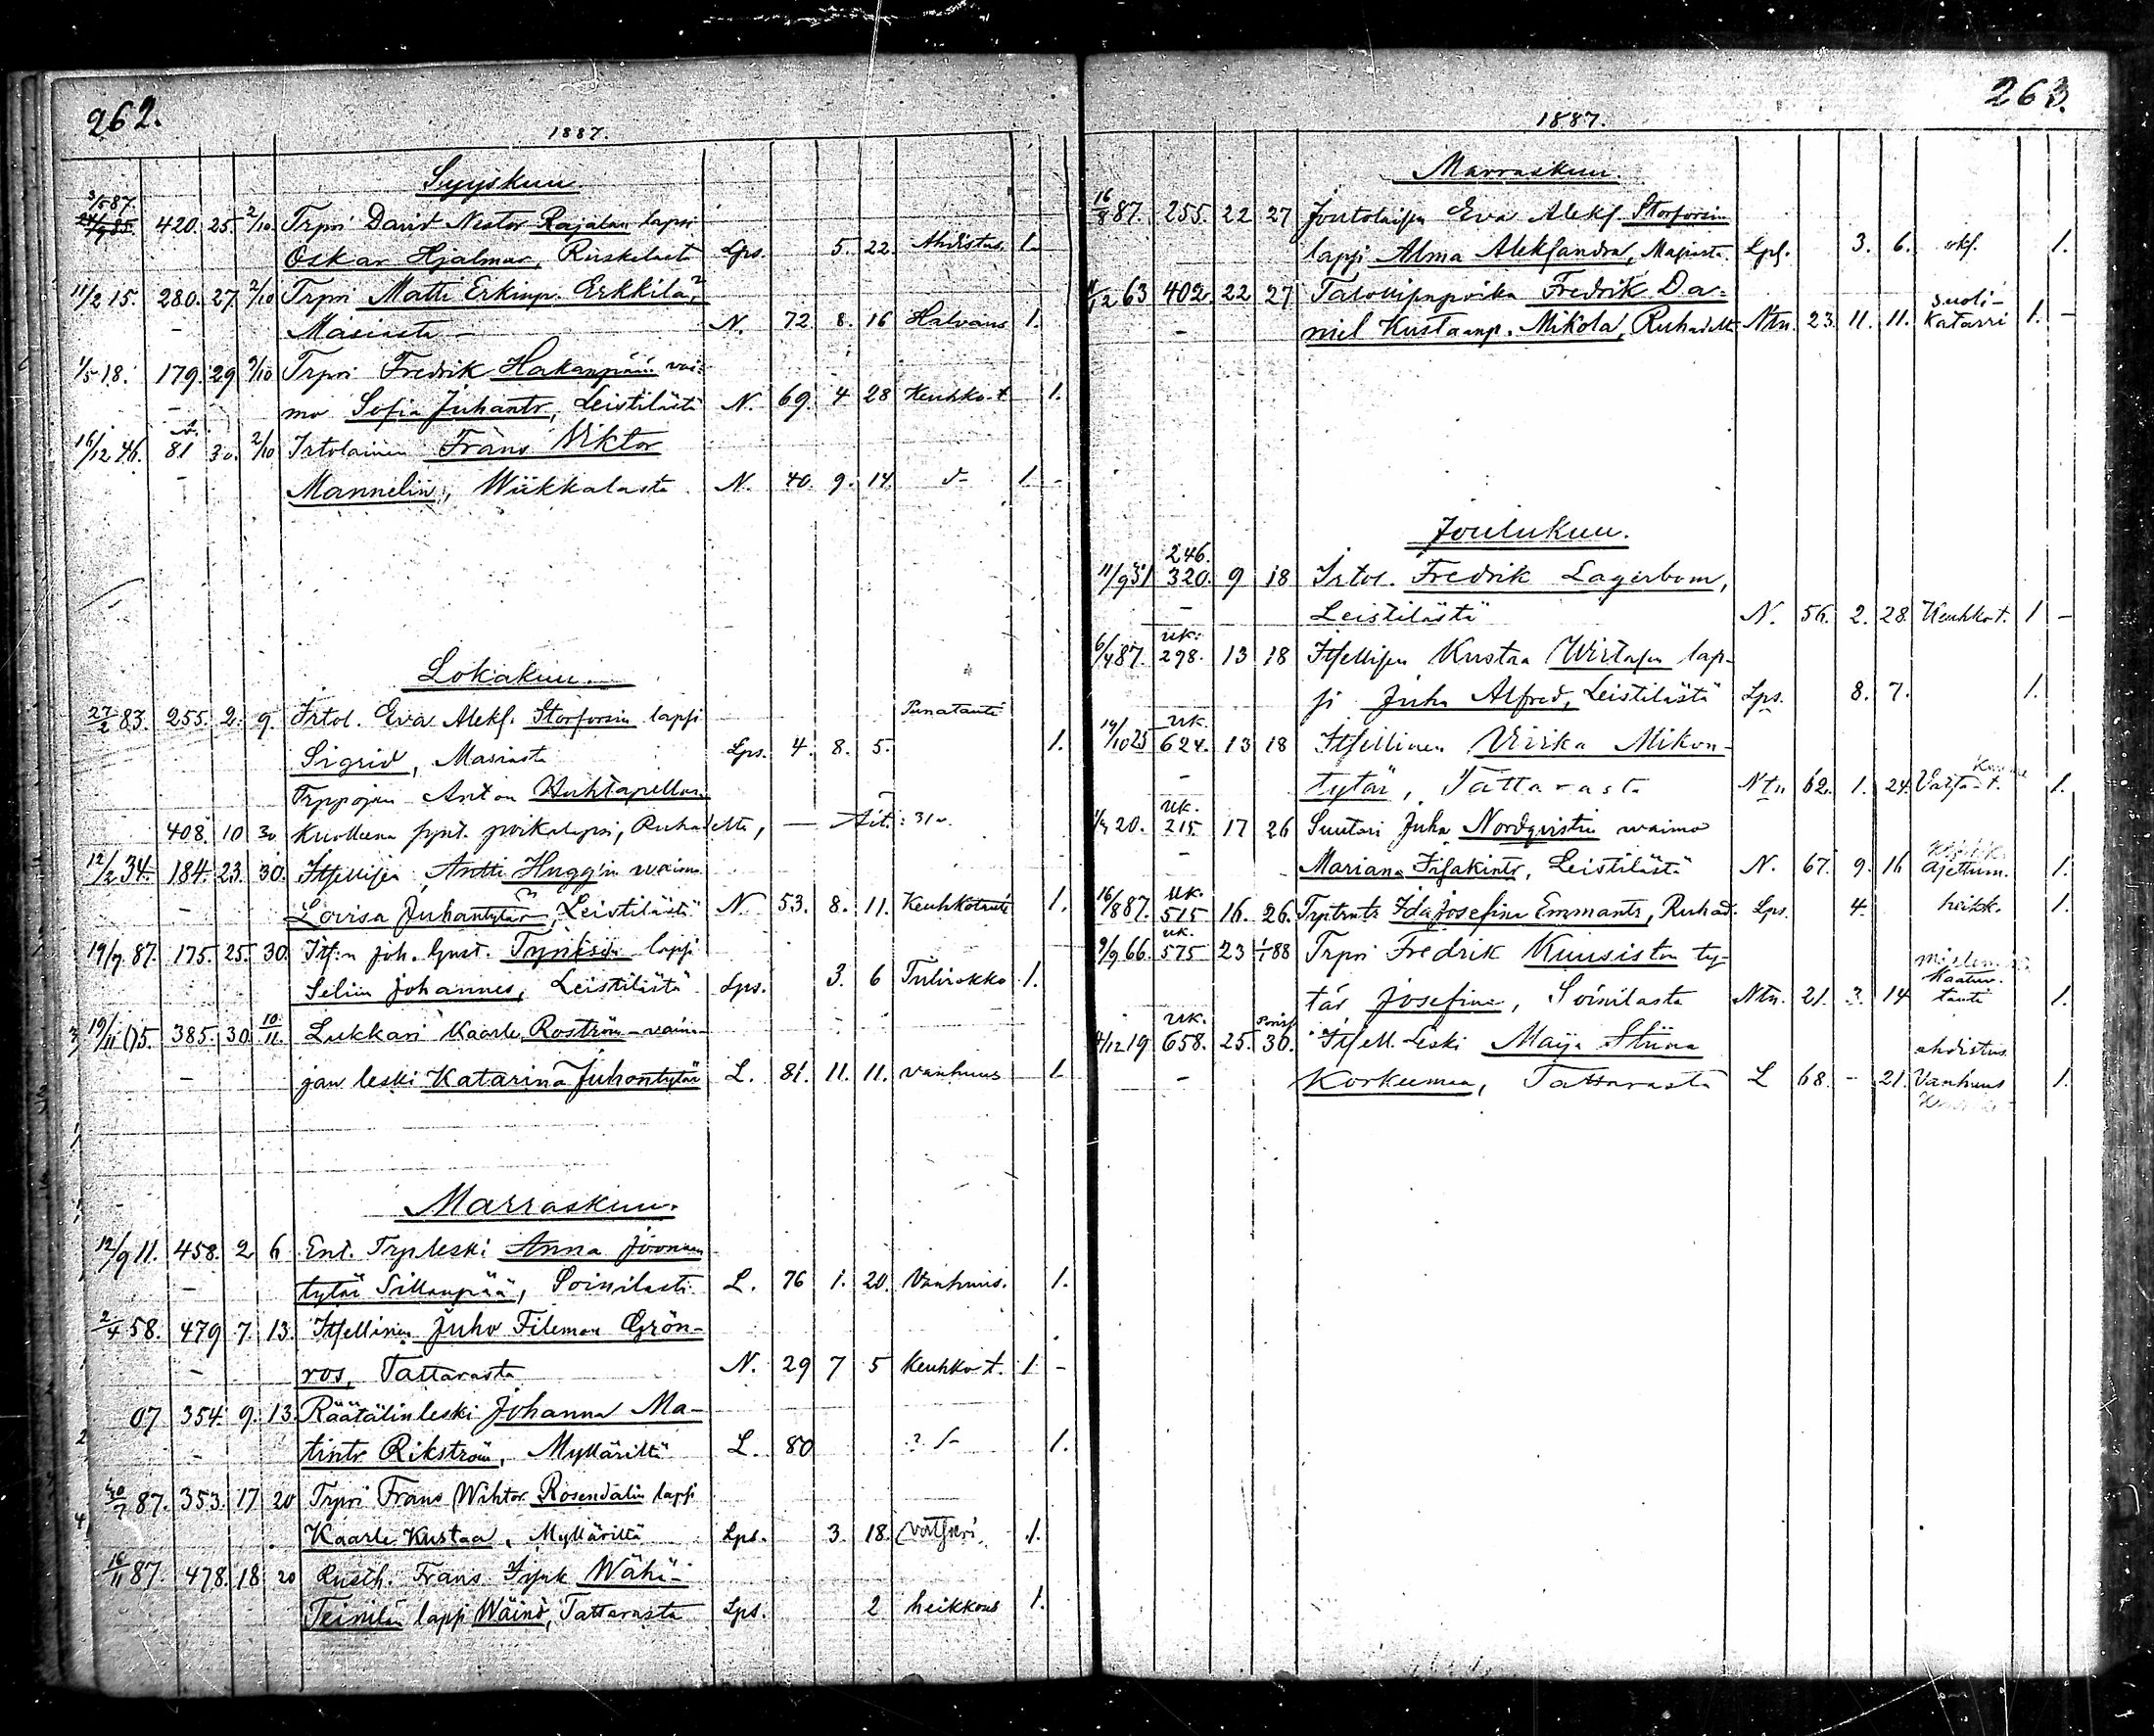 262.
1887.
Syyskuu.
3/5 87.
24/9 85. 420. 25. 2/10 Trpri David Nestor Rajalan lapsi
Oskar Hjalmar, Ruskelasta Lps. 5. 22. Ahdistus. 1.
11/2 15. 280. 27. 2/10 Trpri Matti Erkinp. Erkkilä,
Masiasta N. 72. 8. 16 Halvaus 1.
1/5 18. 179. 29 2/10 Trpri Fredrik Hakanpään vai-
mo Sofia Juhantr, Leistilästä N. 69. 4 28 Keuhko-t 1.
16/12 46. 81 30. 2/10 Irtolainen Frans Viktor
Mannelin, Wiikkalasta N. 40. 9. 14. 1.
Lokakuu.
27/2 83. 255. 2. 9. Irtol. Eva Aleks. Storforsin lapsi Punatauti
Sigrid, Masiasta Lps. 4. 8. 5. 1.
Trppojan Anton Huhtapellon
408. 10 30 kuolleena synt. poikalapsi, Ruhadelta, Äit. 31 v.
12/2 34. 184. 23. 30. Itsellisen Antti Hugg'in waimo
Lovisa Juhantytär, Leistilästä N 53. 8. 11. Keuhkotauti 1.
19/7 87. 175. 25. 30. Its:n Joh. Gust. lapsi
Selim Johannes, Leistilästä Lps. 3. 6 Tulirokko 1.
19/11 05. 385. 30. 10/11. Lukkari Kaarle Roström-vaina-
jan leski Katarina Juhontytär L. 81. 11. 11. vanhuus 1.
Marraskuu.
12/9 11. 458. 2 6 Ent. Trpleski Anna Joonaan
tytär Sillanpää, Soinilasta L. 76 1. 20. Vanhuus. 1.
2/4 58. 479 7. 13. Itsellinen Juho Fileman Grön-
ros, Tattarasta N. 29 7 5 Keuhko t. 1. -
07 354. 9. 13. Räätälinleski Johanna Ma-
tintr Rikström, Mylläriltä L. 80 ? 1.
20/7 87. 353. 17 20 Trpri Frans Wihtor Rosendalin lapsi
Kaarle Kustaa, Mylläriltä Lps. 3. 18. 1.
16/11 87. 478. 18. 20 Rusth. Frans Wähä-
Teinilän lapsi Wäinö, Tattarasta Lps. 2 heikkous 1.
263.
1887.
Marraskuu.
16/8 87. 255. 22 27 Joutolaisen Eva Aleks. Storforsin
lapsi Alma Aleksandra, Masiasta. Lps. 3. 6. 1.
12 63 402. 22 27 Talollisenpoika Fredrik Da-
niel Kustaanp. Mikola, Ruhadelta Ntn. 23. 11. 11. suoli-
katarri 1. -
Joulukuu.
246.
11/9 31 320. 9 18 Irtol. Fredrik Lagerbom,
Leistilästä N. 56. 2. 28. Keuhko t. 1 -
uk.
6/4 87. 298. 13 18 Itsellisen Kustaa Wirtasen lap-
si Juho Alfred, Leistilästä Lps. 8. 7. 1.
uk.
19/10 25 624. 13 18 Itsellinen Virika Mikon-
tytär, Tattarasta Ntn 62. 1. 24. Vatsa-t. 1.
uk.
20. 215 17 26 Suutari Juha Nordqvistin waimo
Mariana Iisakintr, Leistilästä N. 67. 9. 16 Ajettum. 1.
uk.
16/8 87. 515 16. 26. Ida Josefina Emmantr, Ruhad. Lps. 4. heikk. 1.
uk.
9/9 66. 575 23 1/1 88 Trpri Fredrik Kuusiston ty-
tär Josefina, Soinilasta Ntn. 21. 3. 14 tauti 1.
uk.
4/12 19 658. 25. 30. Itsell. Leski Maija Stiina
ahdistus.
Korkeemaa, Tattarasta L 68. - 21. Vanhuus 1.